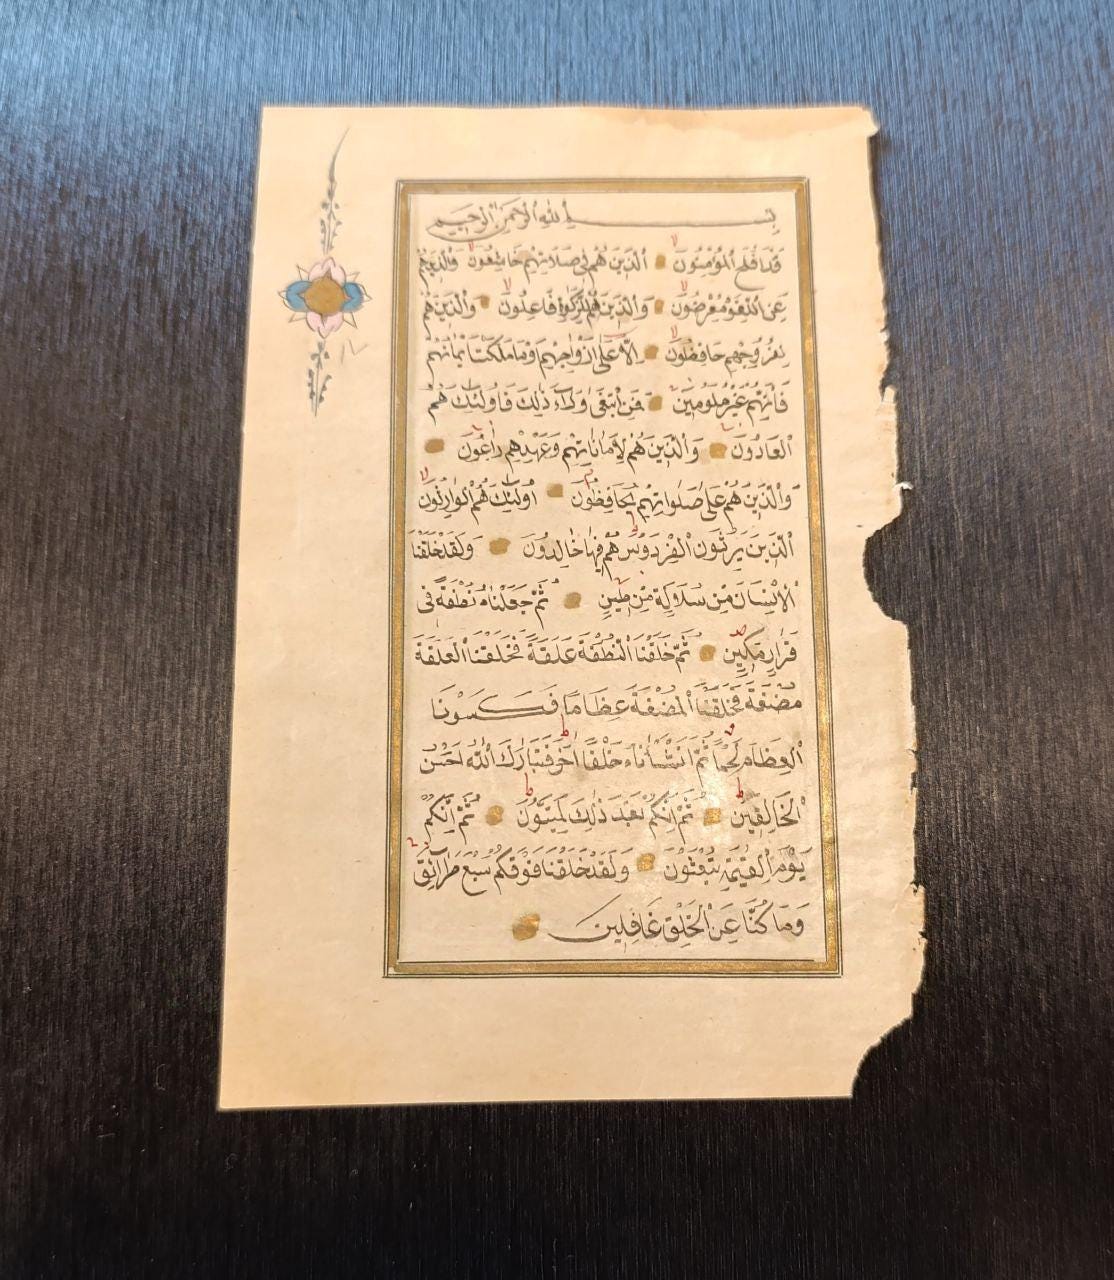 بسم الله الرحمن الرحيم
قَدْ اَفْلَحَ الْمُؤْمِنُونَ الَّذِينَ هُمْ فِي صَلَاتِهِمْ خَاشِعُونَ وَالَّذِينَ هُمْ
عَنِ اللَّغْوِ مُعْرِضُونَ وَالَّذِينَ هُمْ لِلزَّكٰوةِ فَاعِلُونَ وَالَّذِينَ هُمْ
لِفُرُوجِهِمْ حَافِظُونَ اِلَّا عَلَى اَزْوَاجِهِمْ اَوْ مَا مَلَكَتْ اَيْمَانُهُمْ
فَاِنَّهُمْ غَيْرُ مَلُومِينَ فَمَنِ ابْتَغَى وَرَاءَ ذٰلِكَ فَاُولٰئِكَ هُمُ
الْعَادُونَ وَالَّذِينَ هُمْ لِاَمَانَاتِهِمْ وَعَهْدِهِمْ رَاعُونَ
وَالَّذِينَ هُمْ عَلَى صَلَوَاتِهِمْ يُحَافِظُونَ اُولٰئِكَ هُمُ الْوَارِثُونَ
الَّذِينَ يَرِثُونَ الْفِرْدَوْسَ هُمْ فِيهَا خَالِدُونَ وَلَقَدْ خَلَقْنَا
الْاِنْسَانَ مِنْ سُلَالَةٍ مِنْ طِينٍ ثُمَّ جَعَلْنَاهُ نُطْفَةً فِي
قَرَارٍ مَكِينٍ ثُمَّ خَلَقْنَا النُّطْفَةَ عَلَقَةً فَخَلَقْنَا الْعَلَقَةَ
مُضْغَةً فَخَلَقْنَا الْمُضْغَةَ عِظَامًا فَكَسَوْنَا
الْعِظَامَ لَحْمًا ثُمَّ اَنْشَأْنَاهُ خَلْقًا اٰخَرَ فَتَبَارَكَ اللّٰهُ اَحْسَنُ
الْخَالِقِينَ ثُمَّ اِنَّكُمْ بَعْدَ ذٰلِكَ لَمَيِّتُونَ ثُمَّ اِنَّكُمْ
يَوْمَ الْقِيٰمَةِ تُبْعَثُونَ وَلَقَدْ خَلَقْنَا فَوْقَكُمْ سَبْعَ طَرَائِقَ
وَمَا كُنَّا عَنِ الْخَلْقِ غَافِلِينَ